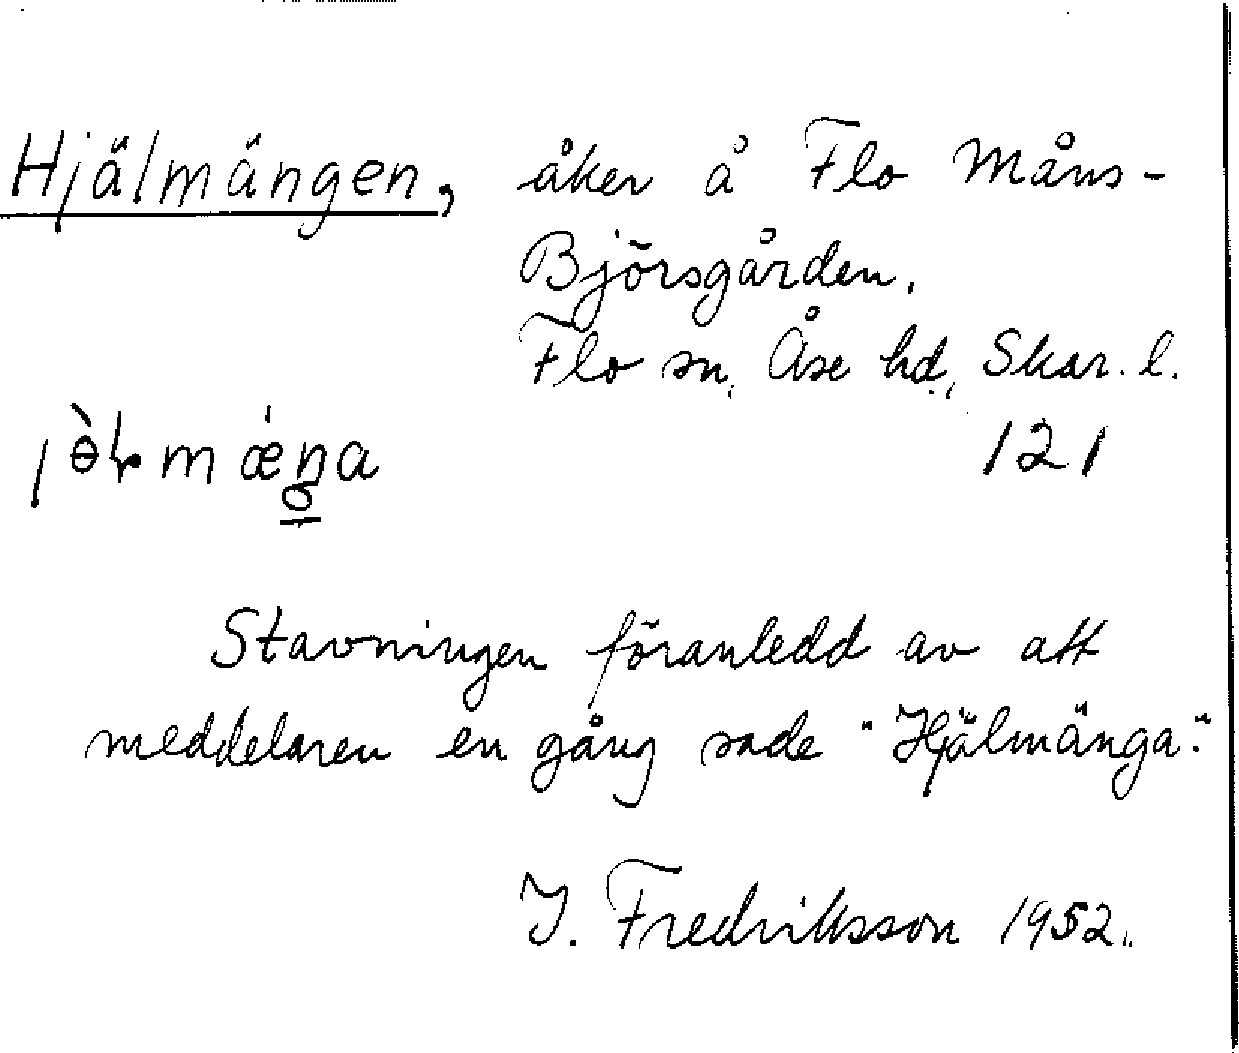 Hjälmängen, åker å Flo Måns-
Björsgården.
Flo sn, Åse hd, Skar. l.
121
Stavningen föranledd av att
meddelaren en gång sade "Hjälmänga."
J. Fredriksson 1952.